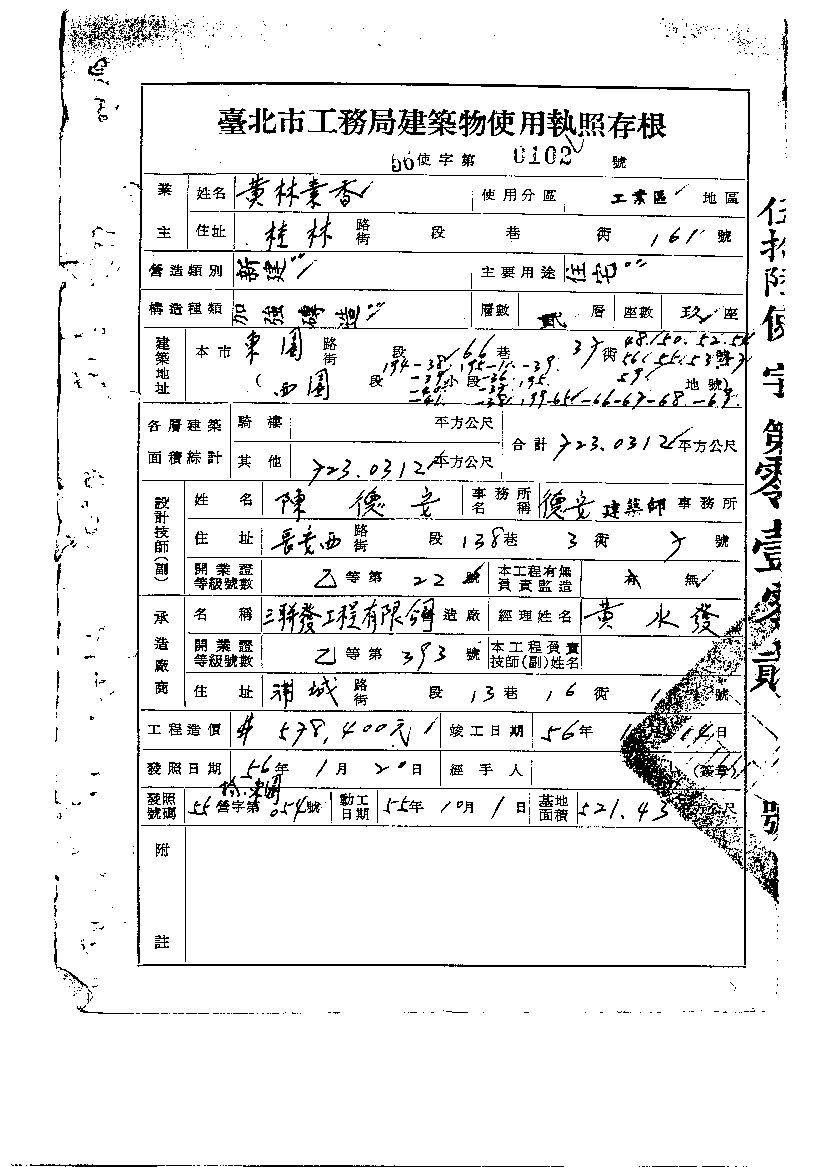 臺北市工務局建築物使用執照存根
56使字第 0102 號
業主 姓名 黃林素香 使用分區 工業區 地區
住址 桂林 路街 段 巷 衖 161 號
營造類別 新建 主要用途 住宅
構造種類 加強磚造 層數 貳 層 座數 玖 座
建築地址 本市 東園 路街 段 66 巷 37 衖 48.50.52.54 號
56. 55. 53
(西園 段 小段 地號)
194-38 195-11 -39
-39 -36 195 59
199-65 -66-67-68-69
各層建築面積綜計 騎樓 平方公尺 合計 723.0312 平方公尺
其他 723.0312 平方公尺
設計技師(副) 姓名 陳德安 事務所名稱 德安建築師 事務所
住址 長安西 路街 段 138 巷 3 衖 7 號
開業證等級號數 乙等第 22 號 本工程有無負責監造 有 無
承造廠商 名稱 三聯發工程有限公司 造廠 經理姓名 黃水發
開業證等級號數 乙等第 393 號 本工程負責技師(副)姓名
住址 浦城 路街 段 13 巷 16 衖 號
工程造價 # 578,400元 竣工日期 56年 14日
發照日期 56年 1月 20日 經手人 (簽章)
發照號碼 55 營字第 054 號 動工日期 55年 10月 1日 基地面積 521.43 公尺
附註
伍拾陸使字第零壹零貳號